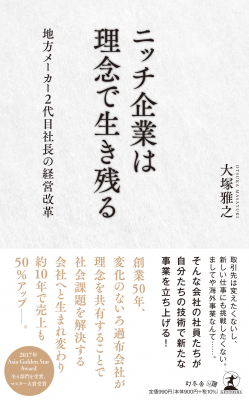 ニッチ企業は
理念で生き残る
地方メーカー2代目社長の経営改革
大塚雅之
OTSUKA MASAYUKI
取引先は変えたくないし、
新しい仕事にも挑戦したくない。
ましてや海外事業なんて……。
そんな会社の社員たちが
自分たちの技術で新たな
事業を立ち上げる!
創業50年、
変化のない過渡布会社が
理念を共有することで
社会課題を解決する
会社へと生まれ変わり
約10年で売上も
50%アップ――。
2017年
Asia Golden Star
Award
幻冬舎
定価990円(本体900円+税10%)